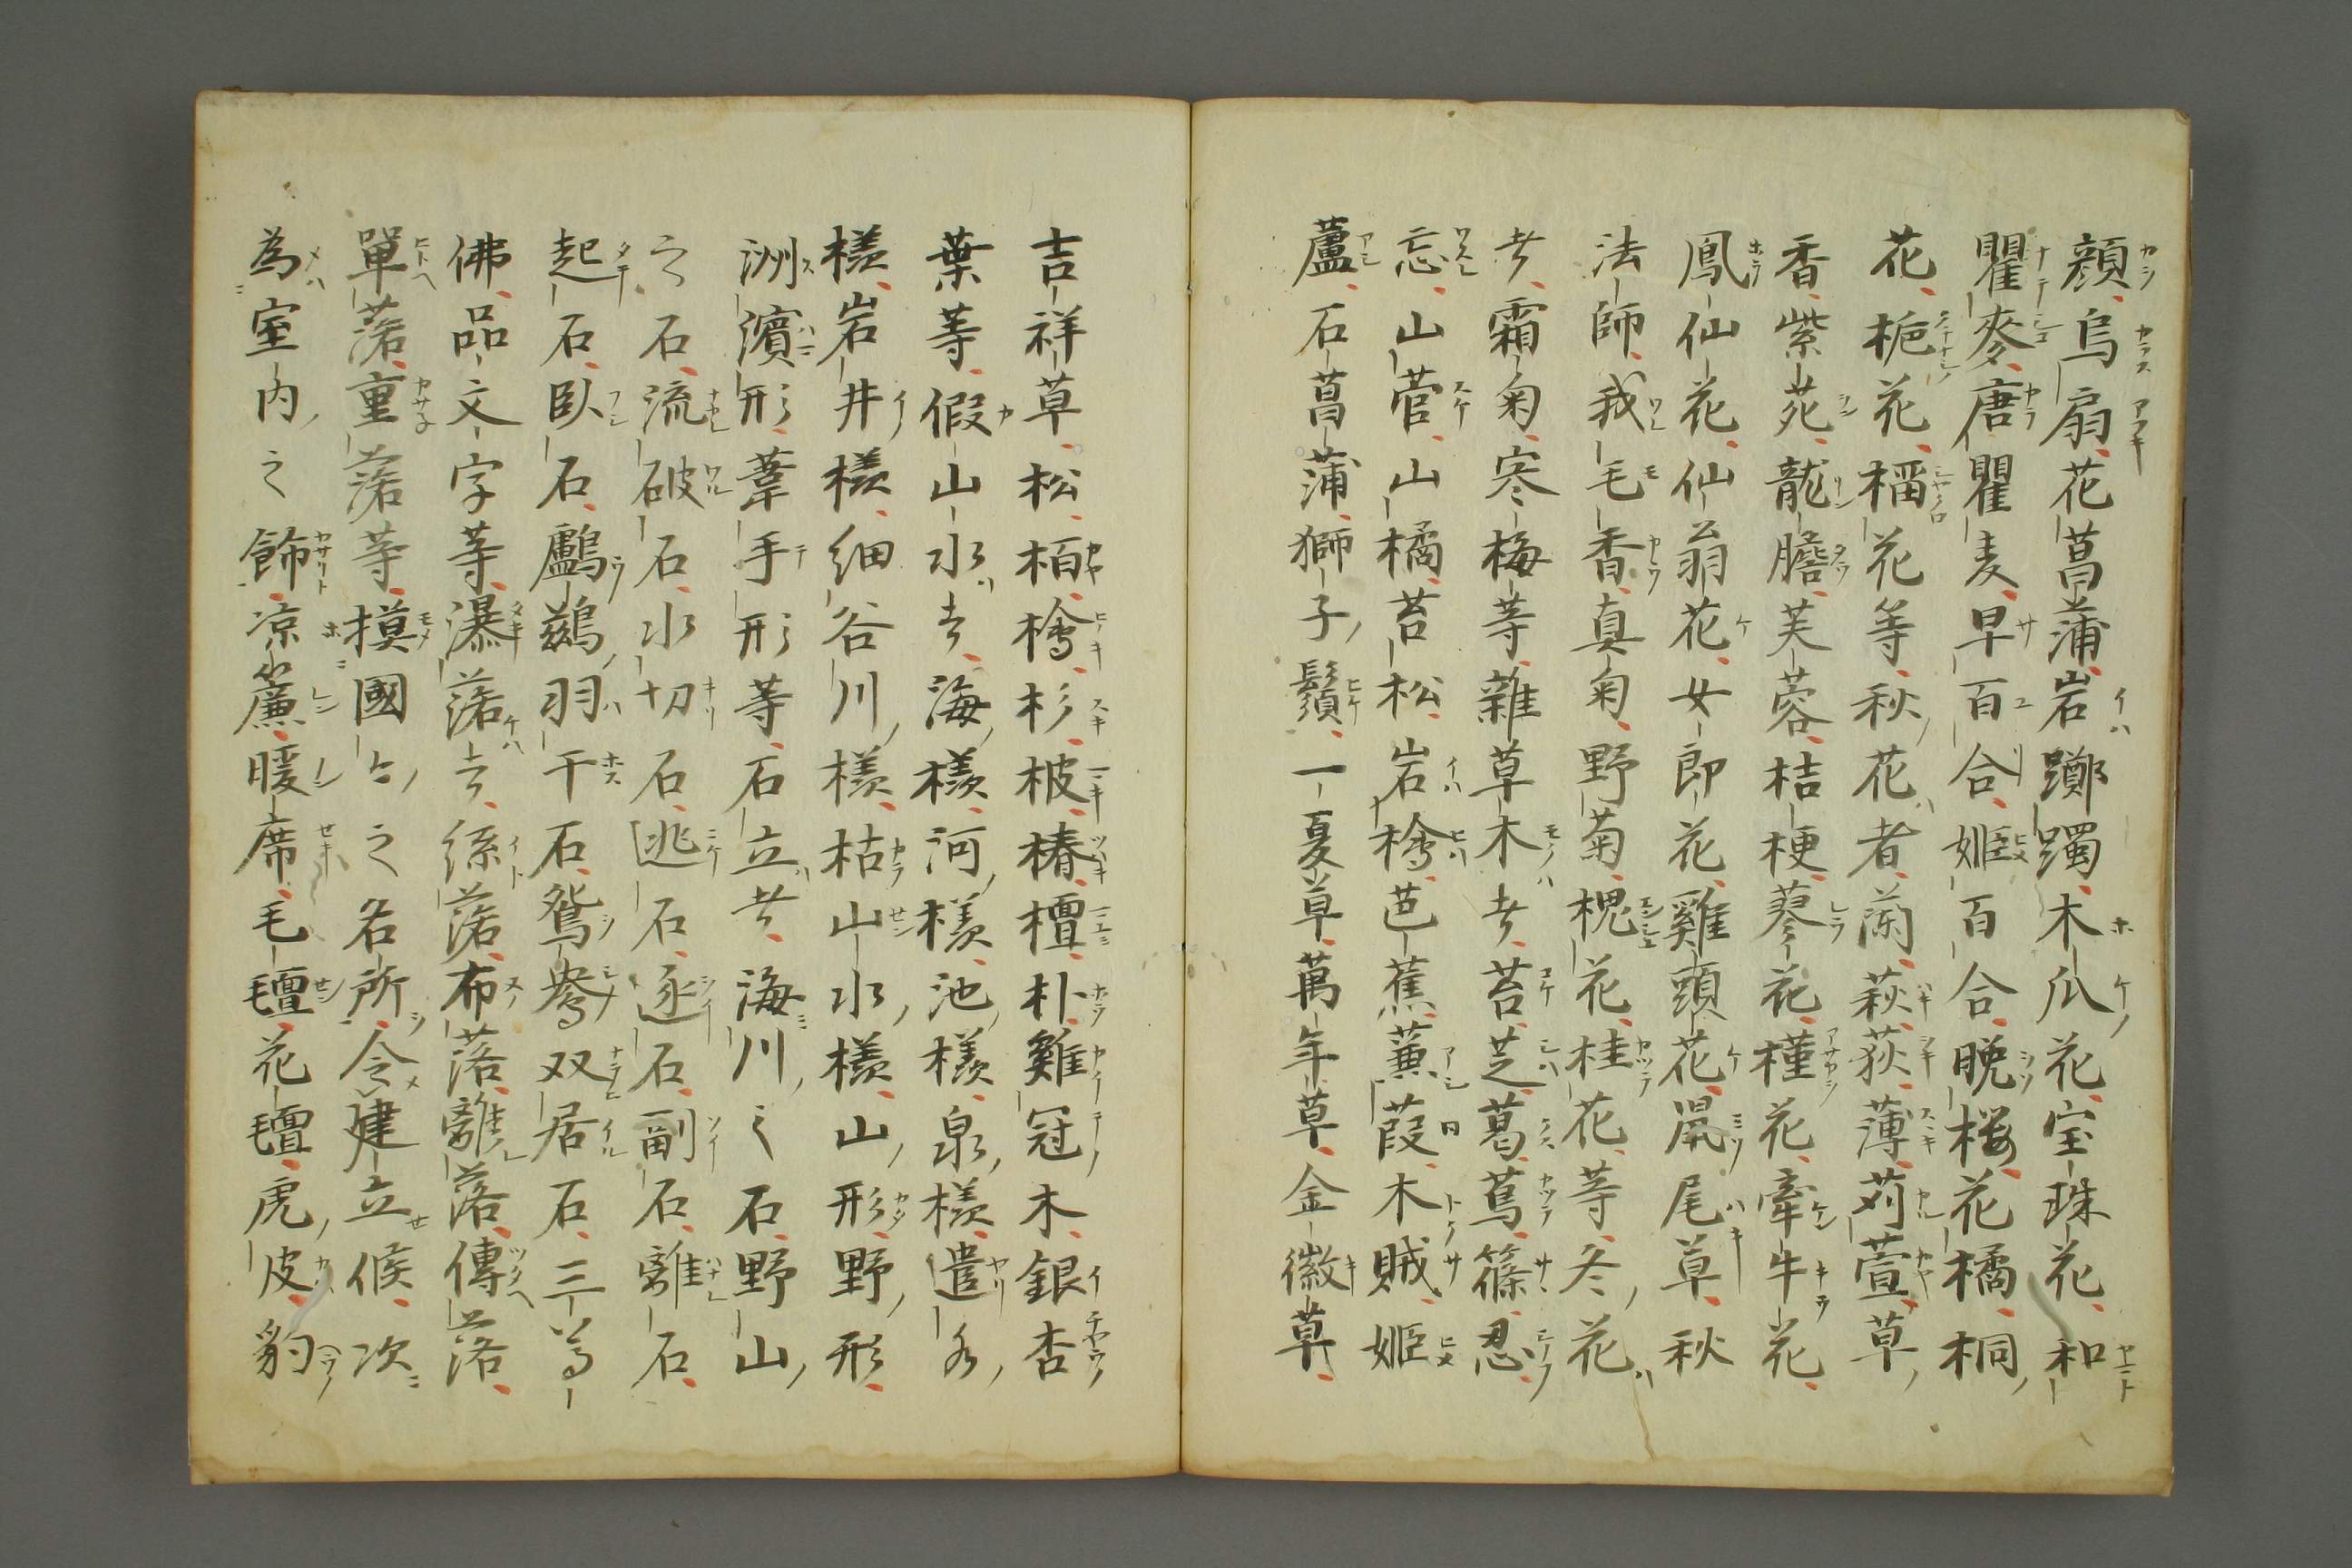 顔烏扇花菖蒲岩躑躅木瓜花宝珠花和
瞿麥唐瞿麦早百合姫百合晩桜花橘桐
花梔花榴花等秋花者蘭萩荻薄苅萱草
香紫苑龍膽芙蓉桔梗蓼花槿花牽牛花
鳳仙花仙翁花女郎花雞頭花鼠尾草秋
法師我毛香真菊野菊槐花桂花等冬花
者霜菊寒梅等雜草木者苔芝葛蔦篠忍
忘山菅山橘苔松岩檜芭蕉蒹葭木賊姫
蘆石菖蒲獅子鬚一夏草萬年草金徽草
吉祥草松栢檜杉椿檀朴雞冠木銀杏
葉等假山水者海様河様池様泉様遣水
様岩井様細谷川様枯山水様山形野形
洲濱形葦手形等石立者海川之石野山
之石流破石水切石逃石逐石副石離石
起石臥石鸕鷀羽干石鴛鴦双居石三尊
佛品文字等瀑落者絲落布落離落傳落
單落重落等摸國々之名所令建立候次
為室内之飾凉簾暖席毛氈花氈虎皮豹